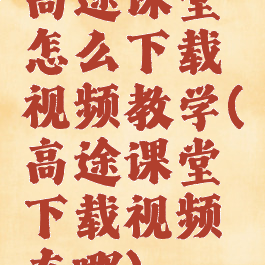 高途课堂
怎么下载
视频教学(
高途课堂
下载视频
在哪)